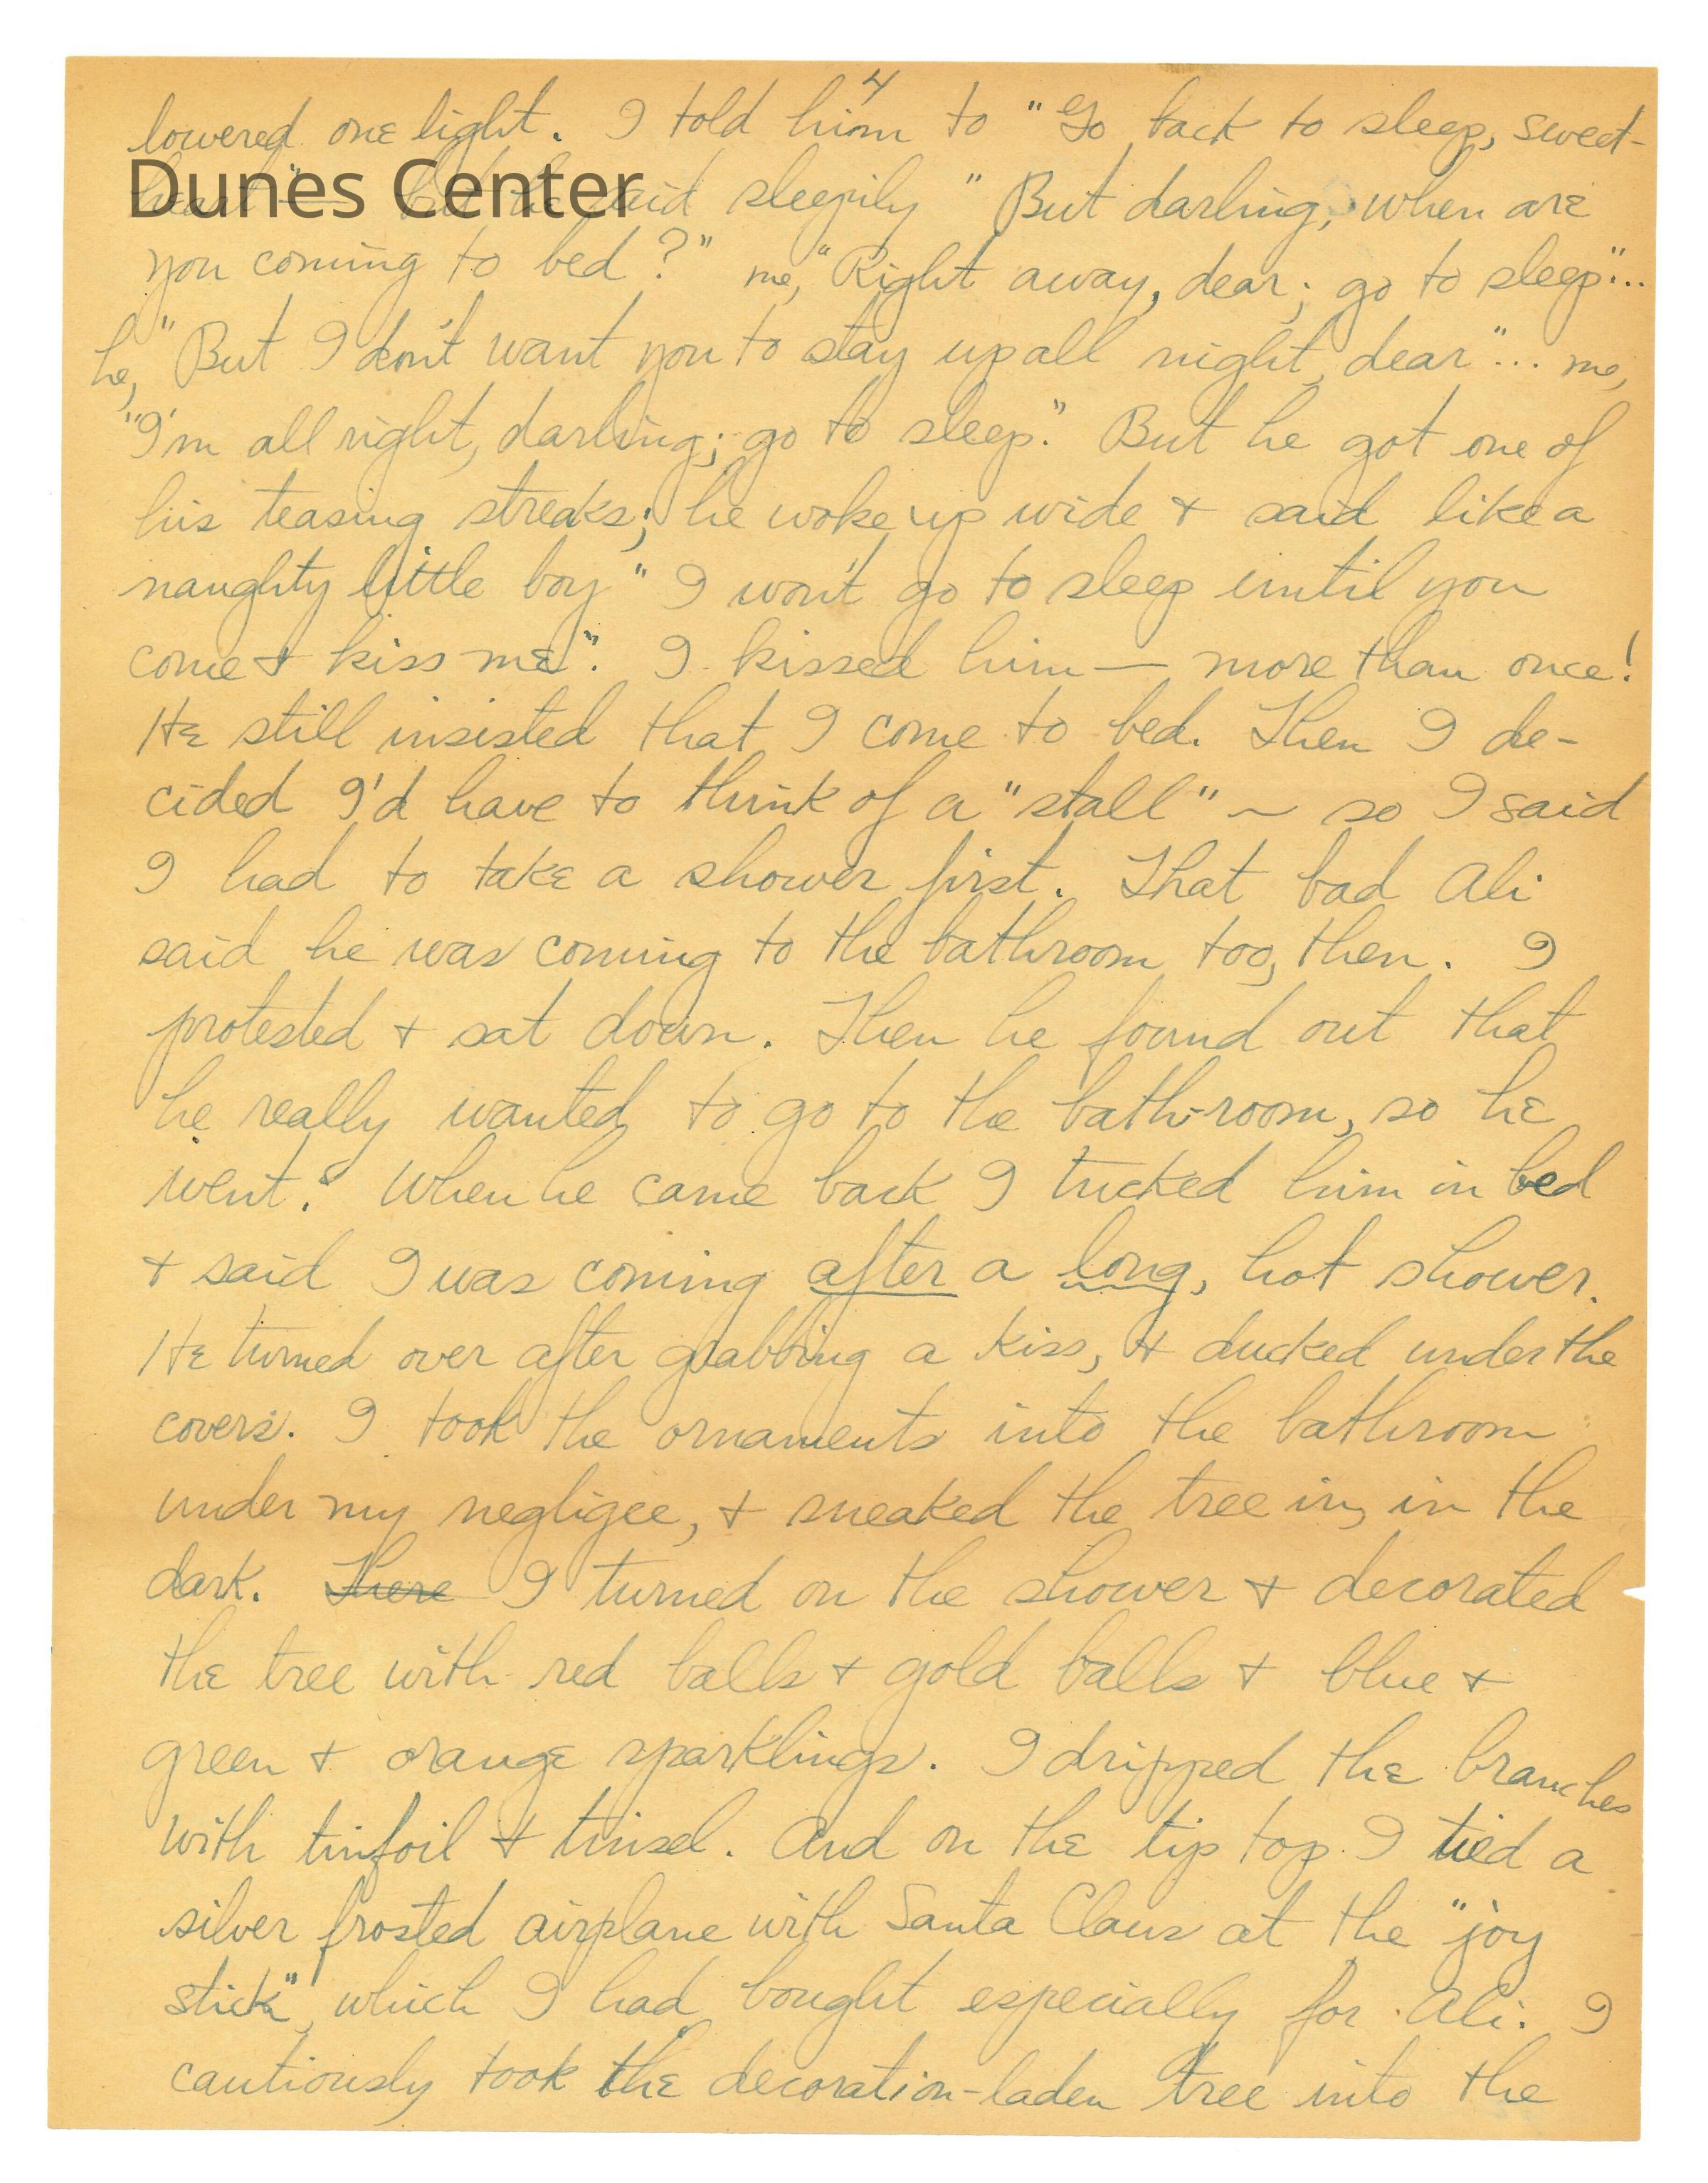 4
lowered one light. I told him to "Go back to sleep, sweet-
Dunes Center
heart" — but he said sleepily "But darling, when are
you coming to bed?" me, "Right away, dear; go to sleep"...
he, "But I don't want you to stay up all night, dear"... me,
"I'm all right, darling; go to sleep." But he got one of
his teasing streaks; he woke up wide + said like a
naughty little boy "I won't go to sleep until you
come + kiss me". I kissed him — more than once!
He still insisted that I come to bed. Then I de-
cided I'd have to think of a "stall" ~ so I said
I had to take a shower first. That bad Ali
said he was coming to the bathroom too, then. I
protested + sat down. Then he found out that
he really wanted to go to the bath-room, so he
went. When he came back I tucked him in bed
+ said I was coming after a long, hot shower.
He turned over after grabbing a kiss, + ducked under the
covers. I took the ornaments into the bathroom
under my negligee, + sneaked the tree in, in the
dark. There I turned on the shower + decorated
the tree with red balls + gold balls + blue +
green + orange sparklings. I dripped the branches
with tinfoil + tinsel. And on the tip top I tied a
silver frosted airplane with Santa Claus at the "joy
stick", which I had bought especially for Ali. I
cautiously took the decoration-laden tree into the